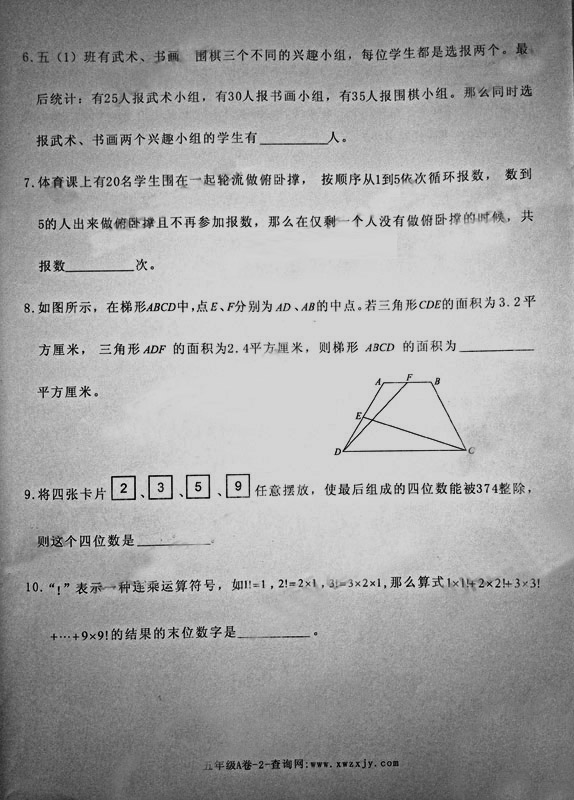 6.五（1）班有武术、书画 围棋三个不同的兴趣小组，每位学生都是选报两个。最
后统计：有25人报武术小组，有30人报书画小组，有35人报围棋小组。那么同时选
报武术、书画两个兴趣小组的学生有________人。
7.体育课上有20名学生围在一起轮流做俯卧撑， 按顺序从1到5依次循环报数， 数到
5的人出来做俯卧撑且不再参加报数，那么在仅剩一个人没有做俯卧撑的时候，共
报数________次。
8.如图所示，在梯形ABCD中，点E、F分别为AD、AB的中点。若三角形CDE的面积为3.2平
方厘米， 三角形 ADF 的面积为2.4平方厘米，则梯形 ABCD 的面积为________
平方厘米。
A F B
E
D C
9.将四张卡片 2 、 3 、 5 、 9 任意摆放，使最后组成的四位数能被374整除，
则这个四位数是________
10.“!”表示一种连乘运算符号，如1!=1，2!=2×1，3!=3×2×1,那么算式1×1!+2×2!+3×3!
+···+9×9!的结果的末位数字是________。
五年级A卷-2-查询网:www.xwzxjy.com